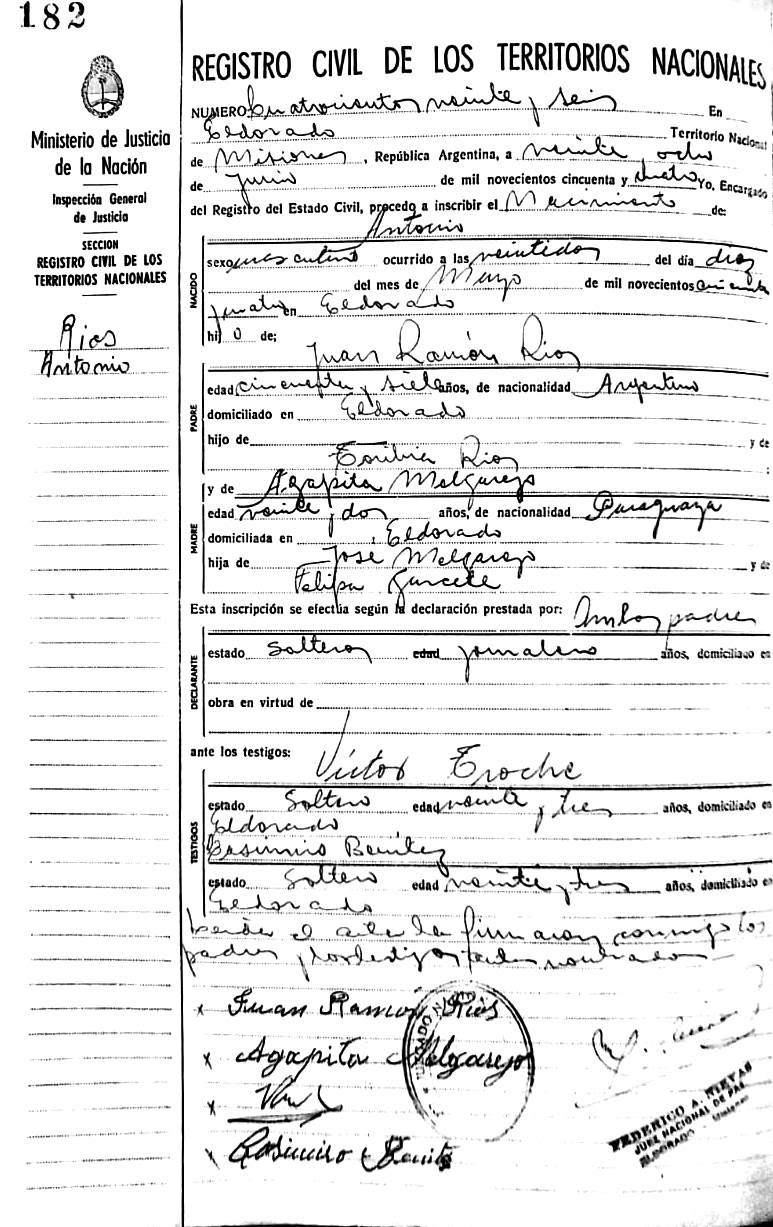 182
Ministerio de Justicia
de la Nación
Inspección General
de Justicia
SECCION
REGISTRO CIVIL DE LOS
TERRITORIOS NACIONALES
Rios
Antonio
REGISTRO CIVIL DE LOS TERRITORIOS NACIONALES
NUMERO Cuatrocientos veinte y seis En
Eldorado Territorio Nacional
de Misiones, República Argentina, a veinte ocho
de Junio de mil novecientos cincuenta y cuatro Yo, Encargado
del Registro del Estado Civil, procedo a inscribir el Nacimiento de:
Antonio
NACIDO
sexo masculino ocurrido a las veintidos del día diez
del mes de Mayo de mil novecientos cincuenta
y cuatro en Eldorado
hijo de:
Juan Ramón Rios
PADRE
edad cincuenta y siete años, de nacionalidad Argentino
domiciliado en Eldorado
hijo de y de
Toribia Rios
MADRE
y de Agapita Melgarejo
edad veinte y dos años, de nacionalidad Paraguaya
domiciliada en Eldorado
hija de José Melgarejo y de
Felipa Garcete
Esta inscripción se efectúa según la declaración prestada por: Ambos padres
DECLARANTE
estado Solteros edad jornalero años, domiciliado en
obra en virtud de
ante los testigos:
Victor Troche
TESTIGOS
estado Soltero edad veinte y tres años, domiciliado en
Eldorado
Casimiro Benitez
estado Soltero edad veinte y tres años, domiciliado en
Eldorado
el acta la firmaron conmigo los
padres y los testigos
x Juan Ramon Rios
x Agapita Melgarejo
x
x Casimiro Benite
JUZGADO
FEDERICO A. NIEVAS
JUEZ NACIONAL DE PAZ
ELDORADO Misiones